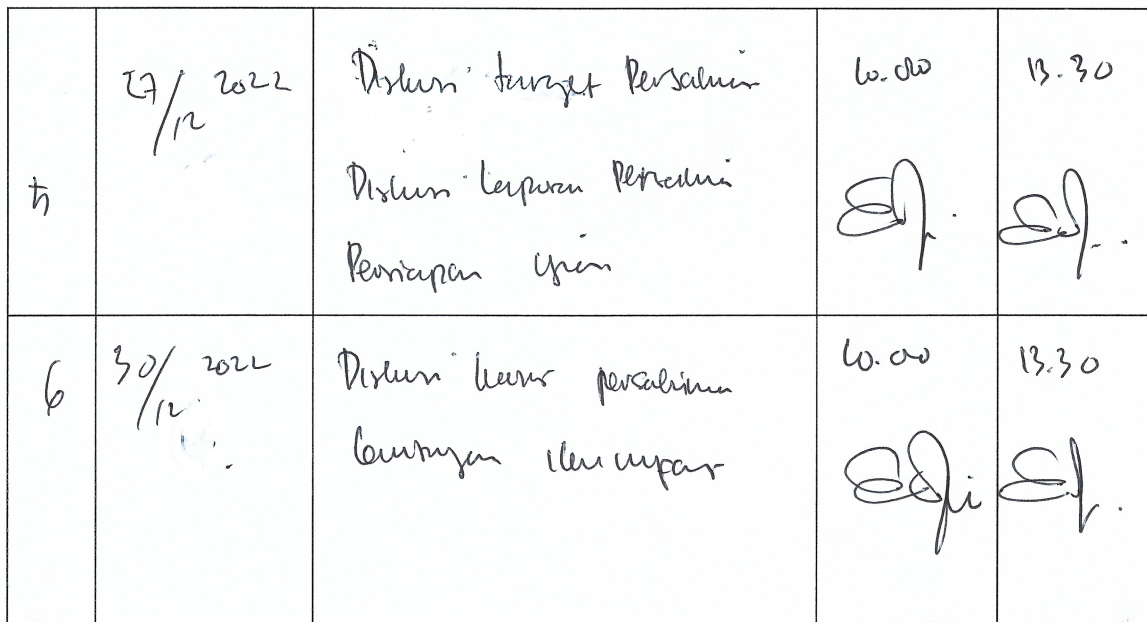 5
27/12 2022
Diskusi target Persalinan
Diskusi Laporan Persalinan
Persiapan Ujian
10.00
13.30
6
30/12 2022
Diskusi kasus persalinan
10.00
13.30